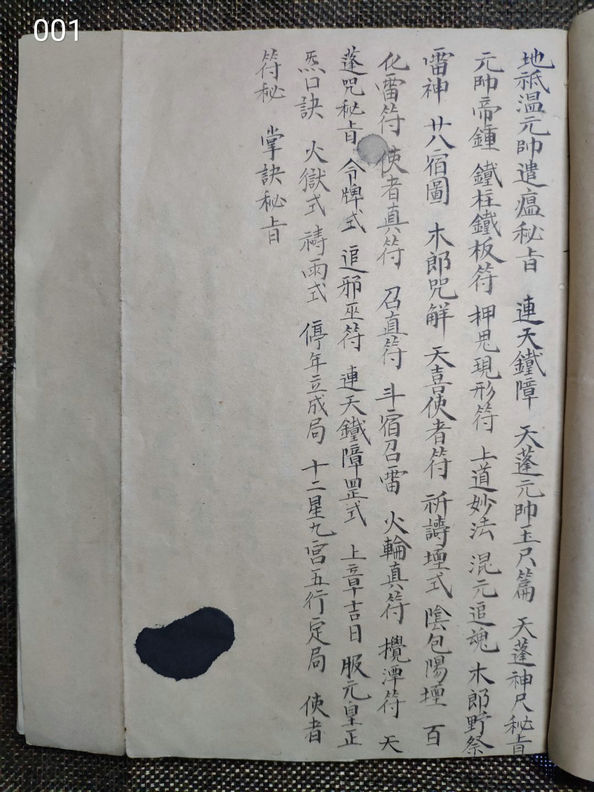 001
地祇温元帥遣瘟秘旨 連天鐵障 天蓬元帥玉尺篇 天蓬神尺秘旨
元帥帝鍾 鐵柱鐵板符 押鬼現形符 上道妙法 混元追魂 木郎野祭
雷神 廿八宿圖 木郎咒解 天喜使者符 祈禱壇式 陰包陽壇 百
化雷符 使者真符 召直符 斗宿召雷 火輪真符 攪潭符 天
蓬咒秘旨 令牌式 追邪巫符 連天鐵障罡式 上章吉日 服元皇正
炁口訣 火獄式 禱雨式 停年立成局 十二星九宮五行定局 使者
符秘 掌訣秘旨